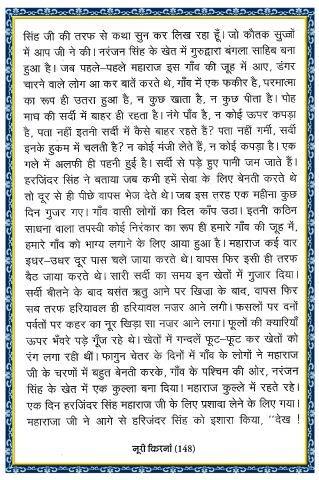 सिंह जी की तरफ से कथा सुन कर लिख रहा हूँ। जो कौतक सुज्जों
में आप जी ने की। नरंजन सिंह के खेत में गुरुद्वारा बंगला साहिब बना
हुआ है। जब पहले-पहले महाराज इस गाँव की जूह में आए, डंगर
चारने वाले लोग आ कर बातें करते थे, गाँव में एक फकीर है, परमात्मा
का रूप ही उतरा हुआ है, न कुछ खाता है, न कुछ पीता है। पोह
माघ की सर्दी में बाहर ही रहता है। नंगे पाँव है, न कोई ऊपर कपड़ा
है, पता नहीं इतनी सर्दी में कैसे बाहर रहते हैं? पता नहीं गर्मी, सर्दी
इनके हुकम में चलती है? न कोई मंजी लेते हैं, न कोई कपड़ा है। एक
गले में अलफी ही पहनी हुई है। सर्दी से पड़े हुए पानी जम जाते हैं।
हरजिंदर सिंह ने बताया जब कभी हमें सेवा के लिए बेनती करते थे
तो दूर से ही पीछे वापस भेज देते थे। जब इस तरह एक महीना कुछ
दिन गुजर गए। गाँव वासी लोगों का दिल काँप उठा। इतनी कठिन
साधना वाला तपस्वी कोई निरंकार का रूप ही हमारे गाँव की जूह में,
हमारे गाँव को भाग्य लगाने के लिए आया हुआ है। महाराज कई बार
इधर-उधर दूर पास चले जाया करते थे। वापस फिर इसी ही तरफ
बैठ जाया करते थे। सारी सर्दी का समय इन खेतों में गुजार दिया।
सर्दी बीतने के बाद बसंत ऋतु आने पर खिज़ा के बाद, वापस फिर
सब तरफ हरियावल ही हरियावल नजर आने लगी। फसलों पर वनों
पर्वतों पर कहर का नूर खिड़ा सा नजर आने लगा। फूलों की क्यारियाँ
ऊपर भँवरे पड़े गूँज रहे थे। खेतों में गन्दलें फूट-फूट कर खेतों को
रंग लगा रही थीं। फागुन चेतर के दिनों में गाँव के लोगों ने महाराज
जी के चरणों में बहुत बेनती करके, गाँव के पश्चिम की ओर, नरंजन
सिंह के खेत में एक कुल्ला बना दिया। महाराज कुल्ले में रहते रहे।
एक दिन हरजिंदर सिंह महाराज जी के लिए प्रशादा लेने के लिए गया।
महाराजा जी ने आगे से हरिजंदर सिंह को इशारा किया, ‘‘देख !
नूरी किरनां (148)